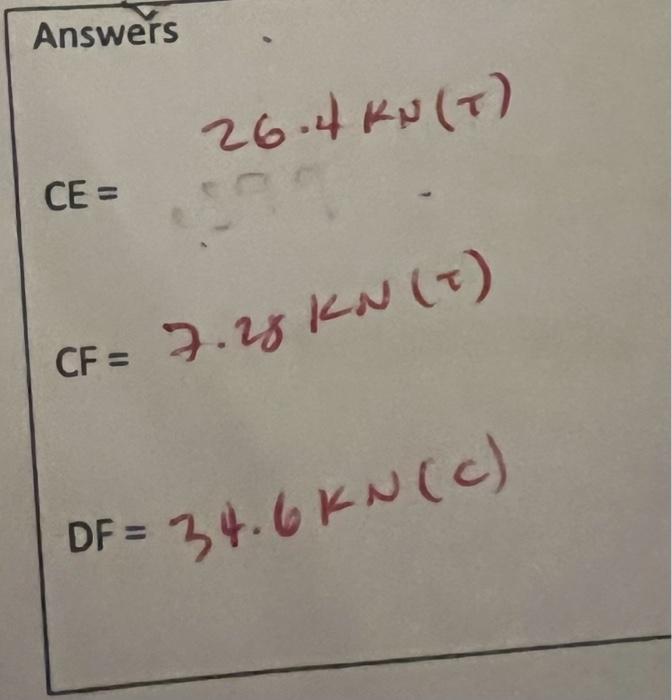 Answers
26.4 KN (T)
CE =
CF = 7.28 KN (T)
DF = 34.6 KN (C)